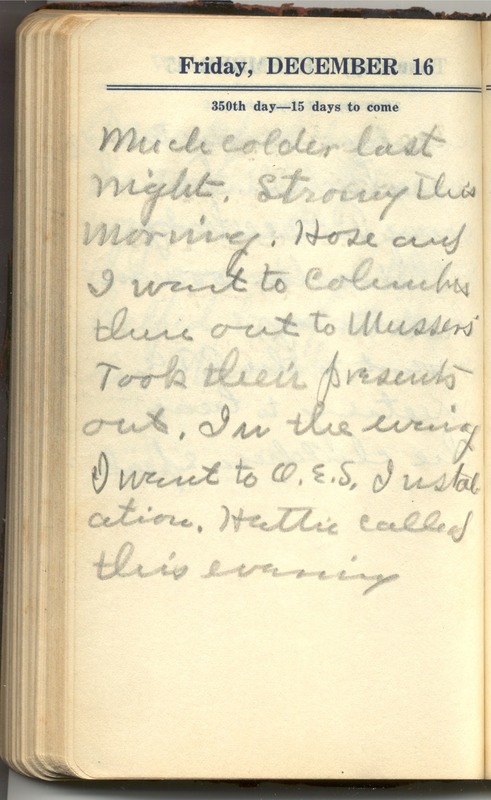 Friday, DECEMBER 16
350th day—15 days to come
Much colder last
night. Strong this
morning. Hose and
I went to Columbus
then out to Mussers'
Took their presents
out. In the evening
I went to O.E.S. Instal
ation. Hattie called
this evening